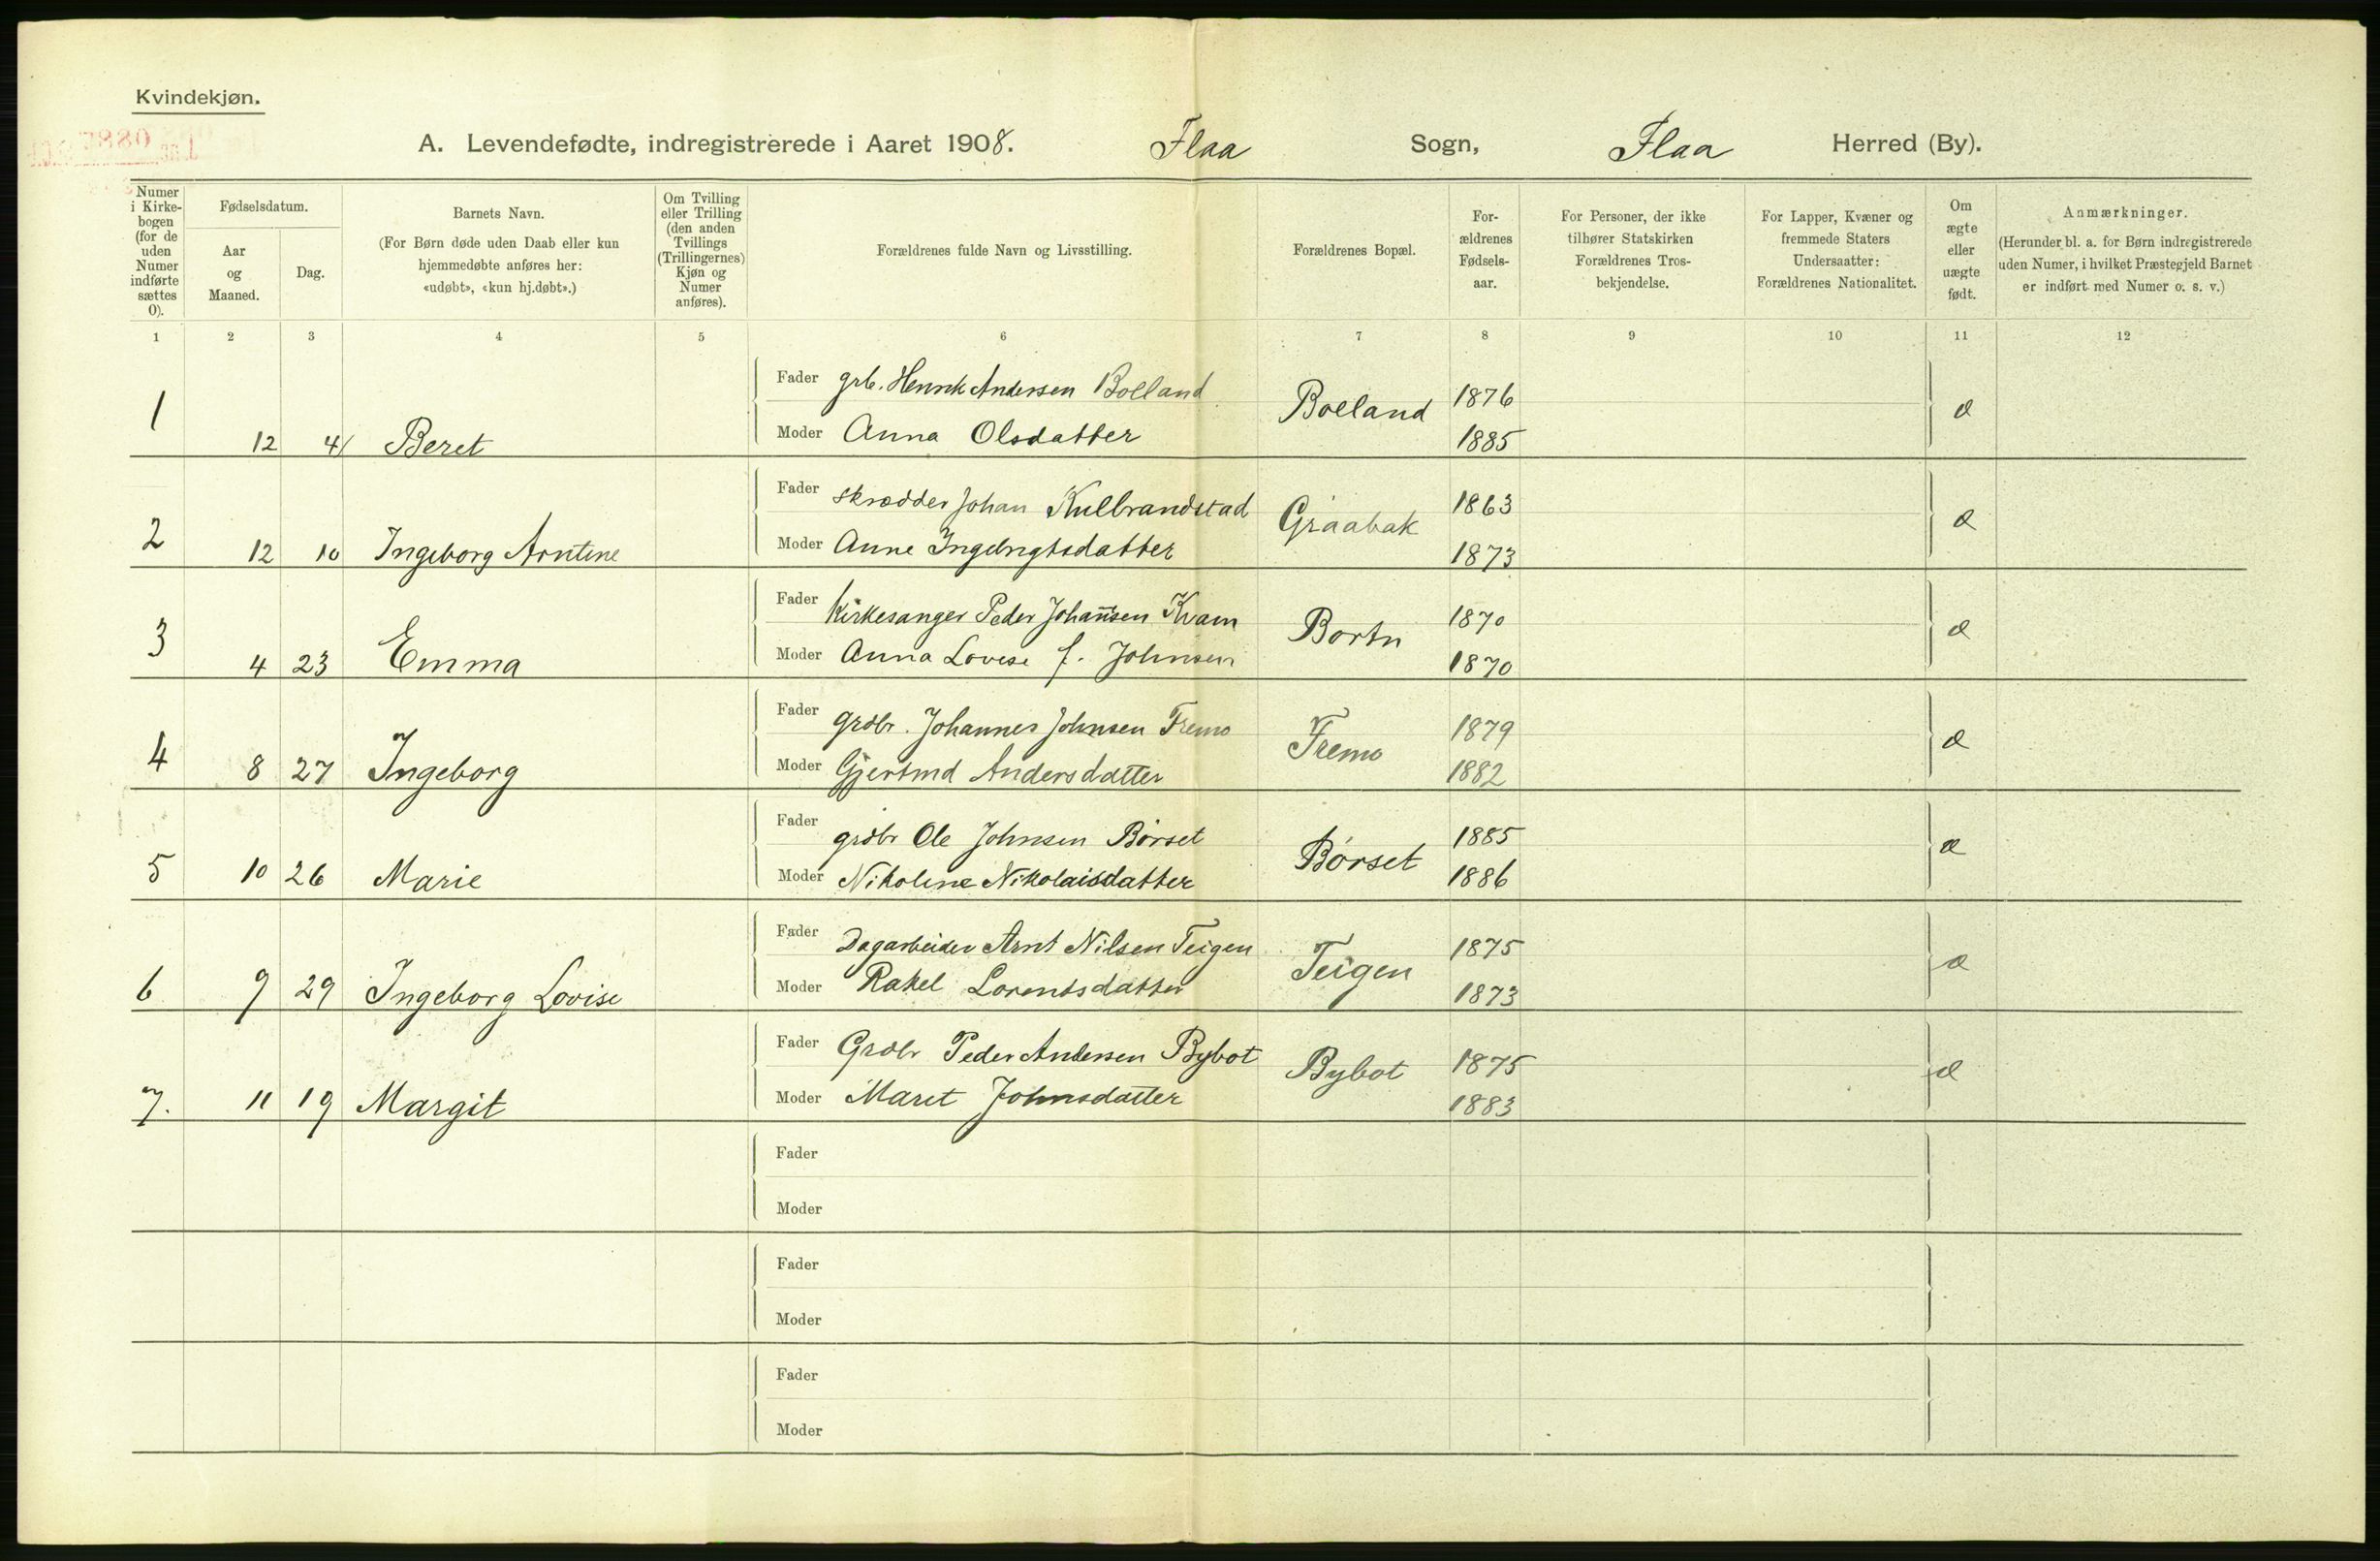 Kvindekjøn.
A. Levendefødte, indregistrerede i Aaret 1908. Flaa Sogn, Flaa Herred (By).
Numer i Kirkebogen (for de uden Numer indførte sættes 0).
Fødselsdatum.
Aar og Maaned.
Dag.
Barnets Navn.
(For Børn døde uden Daab eller kun hjemmedøbte anføres her: «udøbt», «kun hj.døbt».)
Om Tvilling eller Trilling (den anden Tvillings (Trillingernes) Kjøn og Numer anføres).
Forældrenes fulde Navn og Livsstilling.
Forældrenes Bopæl.
Forældrenes Fødselsaar.
For Personer, der ikke tilhører Statskirken Forældrenes Trosbekjendelse.
For Lapper, Kvæner og fremmede Staters Undersaatter: Forældrenes Nationalitet.
Om ægte eller uægte født.
Anmærkninger.
(Herunder bl. a. for Børn indregistrerede uden Numer, i hvilket Præstegjeld Barnet er indført med Numer o. s. v.)
1 2 3 4 5 6 7 8 9 10 11 12
Fader grb. Henrik Andersen Bolland 1876
1 12 4 Beret Bolland æ
Moder Anna Olsdatter 1885
Fader Skrædder Johan Kulbrandstad 1863
2 12 10 Ingeborg Arntine Graabak æ
Moder Anne Ingebrigtsdatter 1873
Fader Kirkesanger Peder Johansen Kvam 1870
3 4 23 Emma Bortn æ
Moder Anna Lovise f. Johnsen 1870
Fader grdbr. Johannes Johnsen Fremo 1879
4 8 27 Ingeborg Fremo æ
Moder Gjertrud Andersdatter 1882
Fader grdbr Ole Johnsen Børset 1885
5 10 26 Marie Børset æ
Moder Nikoline Nikolaisdatter 1886
Fader Dagarbeider Arnt Nilsen Teigen 1875
6 9 29 Ingeborg Lovise Teigen æ
Moder Rakel Lorentsdatter 1873
Fader Grdbr Peder Andersen Bybot 1875
7. 11 19 Margit Bybot æ
Moder Maret Johnsdatter 1883
Fader
Moder
Fader
Moder
Fader
Moder